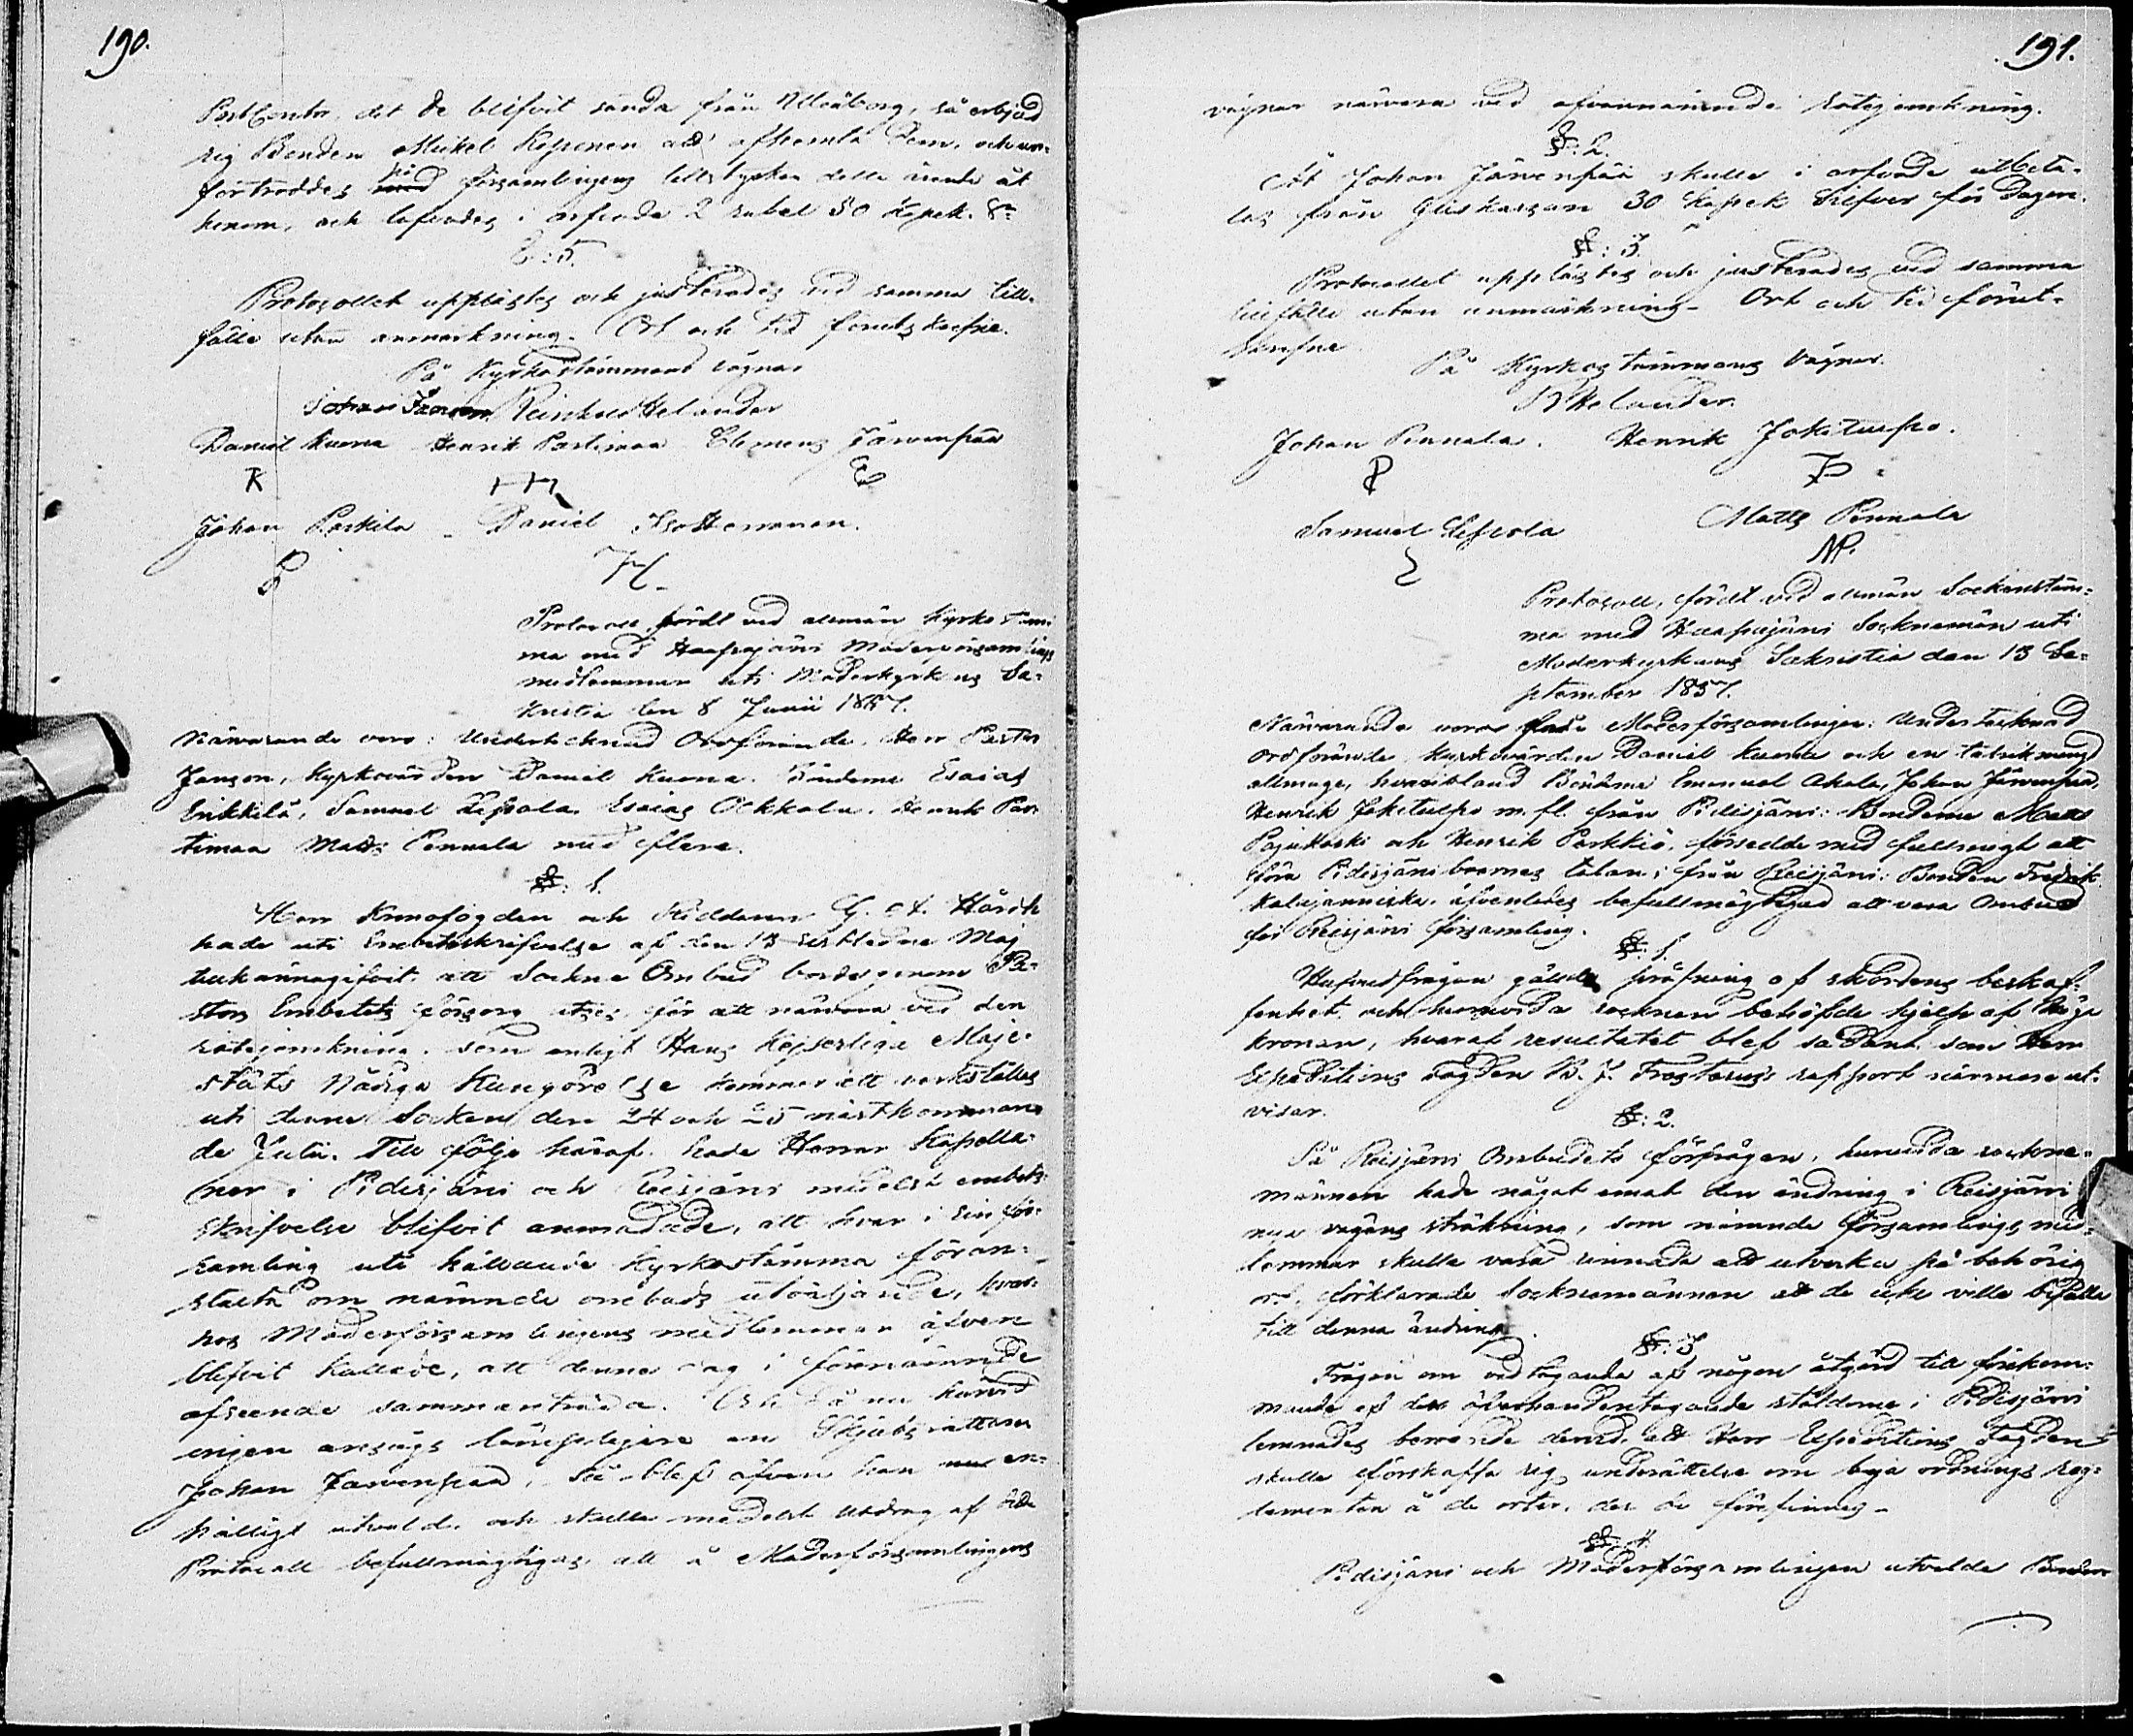 190.
PostContor, det de blifvit sända från Uleåborg, så erbjöd
sig Bonden Mickel Kopsenen att afhemta dem, och an-
förtroddes på församlingens tillstyrkan detta ärende åt
honom, och lofvades i arfvode 2 rubel 50 kopek. Sr
§: 5.
Protocollet upplästes och justerades vid samma till-
fälle utan anmärkning. Ort och tid förutskrefne.
På Kyrkostämmans vägnar
Johan Jansson Reinhold Helander
Daniel Kuona Henrik Partimaa Clemens Järvenpää
K H C
Johan Paskila Daniel Hottonen.
P H
Protocoll, fördt vid allmän Kyrkostäm-
ma med Haapajärvi Moderförsamlings
medlemmar uti Moderkyrkans Sa-
kristia den 8 Junii 1857.
Närvarande voro: Undertecknad Ordförande, Herr Pastor
Jansson, Kyrkovärden Daniel Kuona. Bönderne Esaias
Erikkilä, Samuel Lespola, Esaias Ockkola, Henrik Par-
timaa Matts Pennala med flere.
§: 1.
Herr Kronofogden och Riddaren G. A. Hårdh
hade uti Embetskrifvelse af den 13 sistledne Maj
tillkännagifvit att Sockne Ombud borde genom Pa-
stors Embetets försorg utses, för att närvara vid den
rotejemkning, som enligt Hans Kejserliga Maje-
stäts Nådiga Kungörelse kommer att verkställas
uti denna Socken den 24 och 25 nästkomman-
de Julii. Till följe häraf hade Herrar Kapella-
ner i Pidisjärvi och Reisjärvi medelst embets
skrifvelse blifvit anmodade, att hvar i sin för-
samling uti hållande Kyrkostämma föran-
stalta om nämnde ombuds utväljande, hvar-
hos Moderförsamlingens medlemmar äfven
blifvit kallade, att denna dag i förenämnde
afseende sammanträda. Och då nu härvid
ingen ansågs lämpligare än Skjutsrättaren
Johan Järvenpää, så blef äfven han en-
hälligt utvald, och skulle medelst Utdrag af detta
Protocoll befullmägtigas, att å Moderförsamlingens
191.
vägnar närvara vid ofvannämnde rotejemkning.
§: 2.
Åt Johan Järvenpää skulle i arfvode utbeta-
las från Guskassan 30 kopek Silfver för dagen.
§: 3.
Protocollet upplästes och justerades vid samma
tillfälle utan anmärkning. Ort och tid förut-
skrefne
På Kyrkostämmans Vägnar.
R Helander.
Johan Pennala. Henrik Jokitulpo.
P JP
Samuel Lespola Matts Pennala
MP.
Protocoll, fördt vid allmän Sockenstäm-
ma med Haapajärvi Socknemän uti
Moderkyrkans Sakristia den 13 Se-
ptember 1857.
Närvarande voro från Moderförsamlingen: Undertecknad
Ordförande, Kyrkovärden Daniel Kuona och en talrik mängd
allmoge, hvaribland Bönderne Emanuel Okola, Johan Järvenpää,
Henrik Jokitulpo m. fl. från Pidisjärvi: Bönderne Matts
Pajukoski och Henrik Parkkio, försedde med fullmagt att
föra Pidisjärviboernes talan; från Reisjärvi: Bonden Fredrik
Kalajanniska, äfvenledes befullmägtigad att vara Ombud
för Reisjärvi församling.
§: 1.
Hufvudfrågan gällde pröfning af skördens beskaf-
fenhet, och huruvida socknen behöfde hjelp af Höga
Kronan, hvaraf resultatet blef sådant som Herr
Expeditions Fogden B. J. Frosterus's rapport närmare ut-
visar.
§: 2.
På Reisjärvi Ombudets förfrågan, huruvida sockne-
männen hade något emot den ändring i Reisjärvi
nya vägens sträkning, som nämnde församlings med-
lemmar skulle vara sinnade att utverka på behörig
ort, förklarade Socknemännen att de icke ville bifalla
till denna ändring.
§: 3
Frågan om vidtagande af någon åtgärd till förekom-
mande af den öfverhandentagande stölderne i Pidisjärvi
lemnades beroende dervid, att Herr Expeditions Fogden
skulle förskaffa sig underrättelse om byja ordnings reg-
lementen å de orter, der de förefinnas.
§: 4
Pidisjärvi och Moderförsamlingen utvalde Bonden